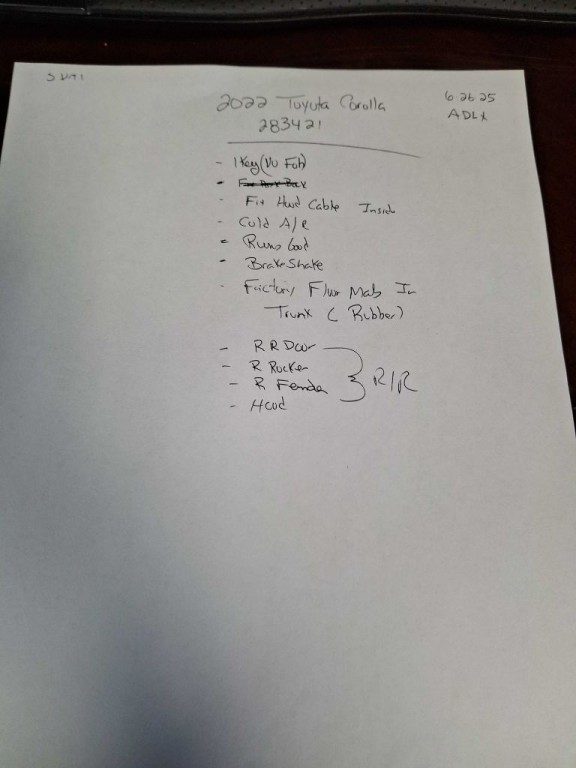 2022 Toyota Corolla
6-26-25
283421
ADLX
- 1 Key (No Fob)
- Fix Hood Cable Inside
- Cold A/C
- Runs Good
- Brake Shake
- Factory Floor Mats In
Trunk (Rubber)
- R R Door
- R Rocker
- R Fender
- Hood
R/R